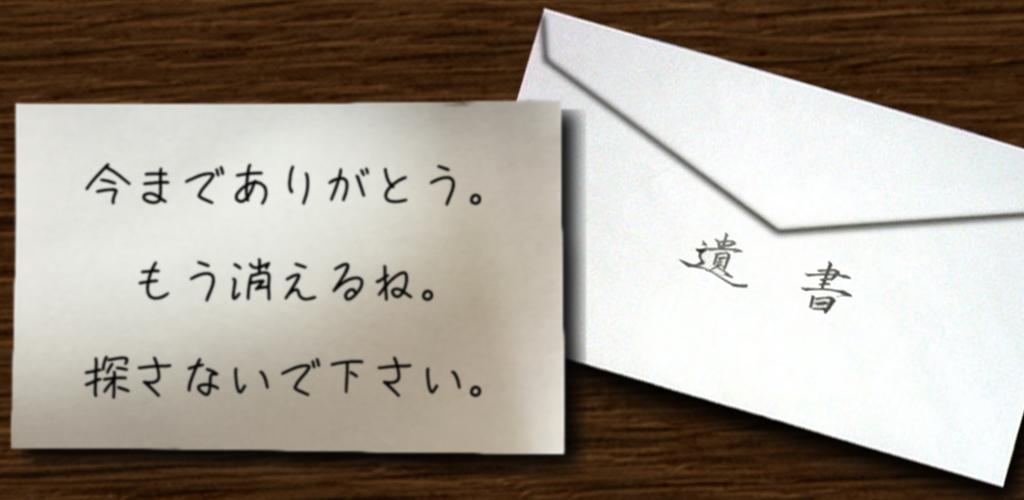 今までありがとう。
もう消えるね。
探さないで下さい。
遺書